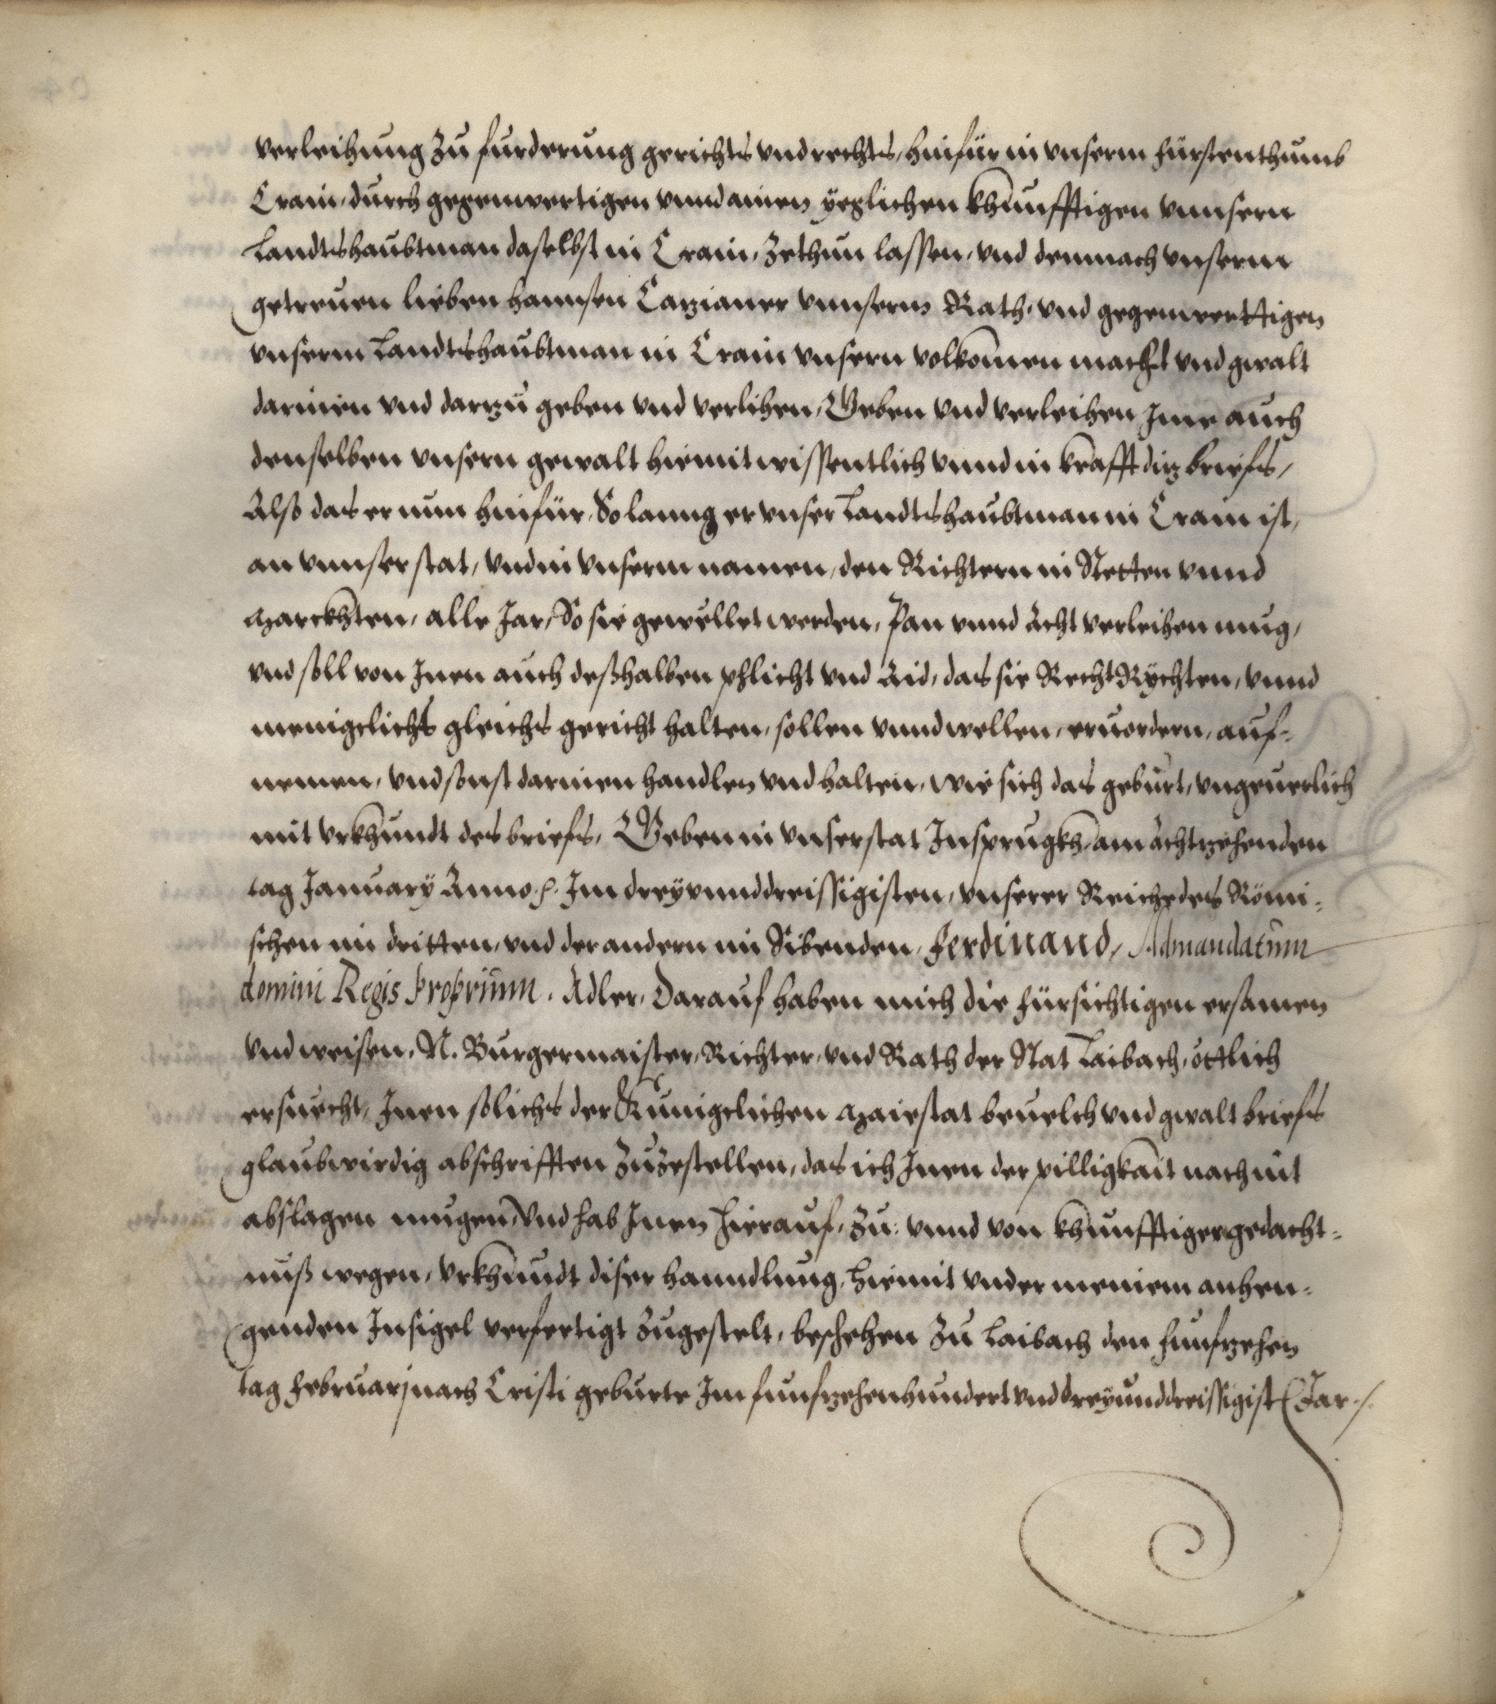 verleihung zu furderung gerichts vnd rechts, hinfür in vnserm fürstenthumb
Crain, durch gegenwertigen vnnd ainen yeglichen khünfftigen vnnsern
Landtshaubtman daselbst in Crain, zethun lassen, vnd demnach vnserm
getreuen lieben hannsen Cazianer vnnserm Rath, vnd gegenwerttigen
vnserm Landtshaubtman in Crain vnsern volkomen macht vnd gwalt
darinen vnd darzu geben vnd verlihen, Geben vnd verleihen Jme auch
denselben vnsern gewalt hiemit wissentlich vnnd in krafft diz briefs,
Alß das er nun hinfür, So lanng er vnser Landtshaubtman in Crain ist,
an vnnser stat, vnd in vnserm namen, den Richtern in Stetten vnnd
Marckhten, alle Jar, So sie gewellet werden, Pan vnnd Acht verleihen mug,
vnd soll von Jnen auch deßhalben phlicht vnd Aid, das sie Recht Rychten, vnnd
menigclichs gleichs gericht halten, sollen vnnd wellen, eruordern, auf-
nemen, vnd sonst darinen handlen vnd halten, wie sich das geburt, vngeuerlich
mit vrkhundt des briefs, Geben in vnser stat Jnsprugkh, am Achtzehenden
tag January Anno .. Im dreyvnnddreissigisten, vnserer Reiche des Römi-
schen im dritten, vnd der andern im Sibenden, Ferdinand, Admandatum
domini Regis Proprium. Adler, Darauf haben mich die fürsichtigen ersamen
vnd weisen, N. Burgermaister, Richter, vnd Rath der Stat Laibach, ötlich
ersuecht, Jnen solichs der Kunigclichen Maiestat beuelch vnd gwalt briefs
glaubwirdig abschrifften zuzestellen, das ich Jnen der pilligkait nach nit
abslagen mugen, Vnd hab Jnen hierauf, zu: vnnd von khunfftiger gedacht-
nuß wegen, vrkhundt diser hanndlung, hiemit vnder meinem anhen-
genden Jnsigel verfertigt zugestelt, beschehen zu Laibach den funfzehen
tag februarj nach Cristi geburte Jm funfzehenhundert vnd dreyunddreissigist Jar